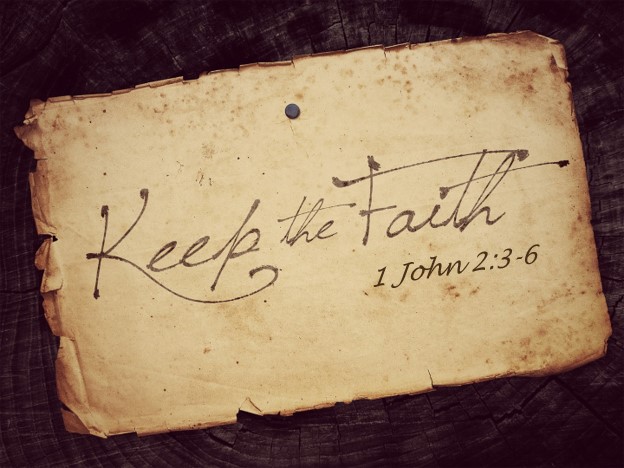 Keep the Faith
1 John 2:3-6